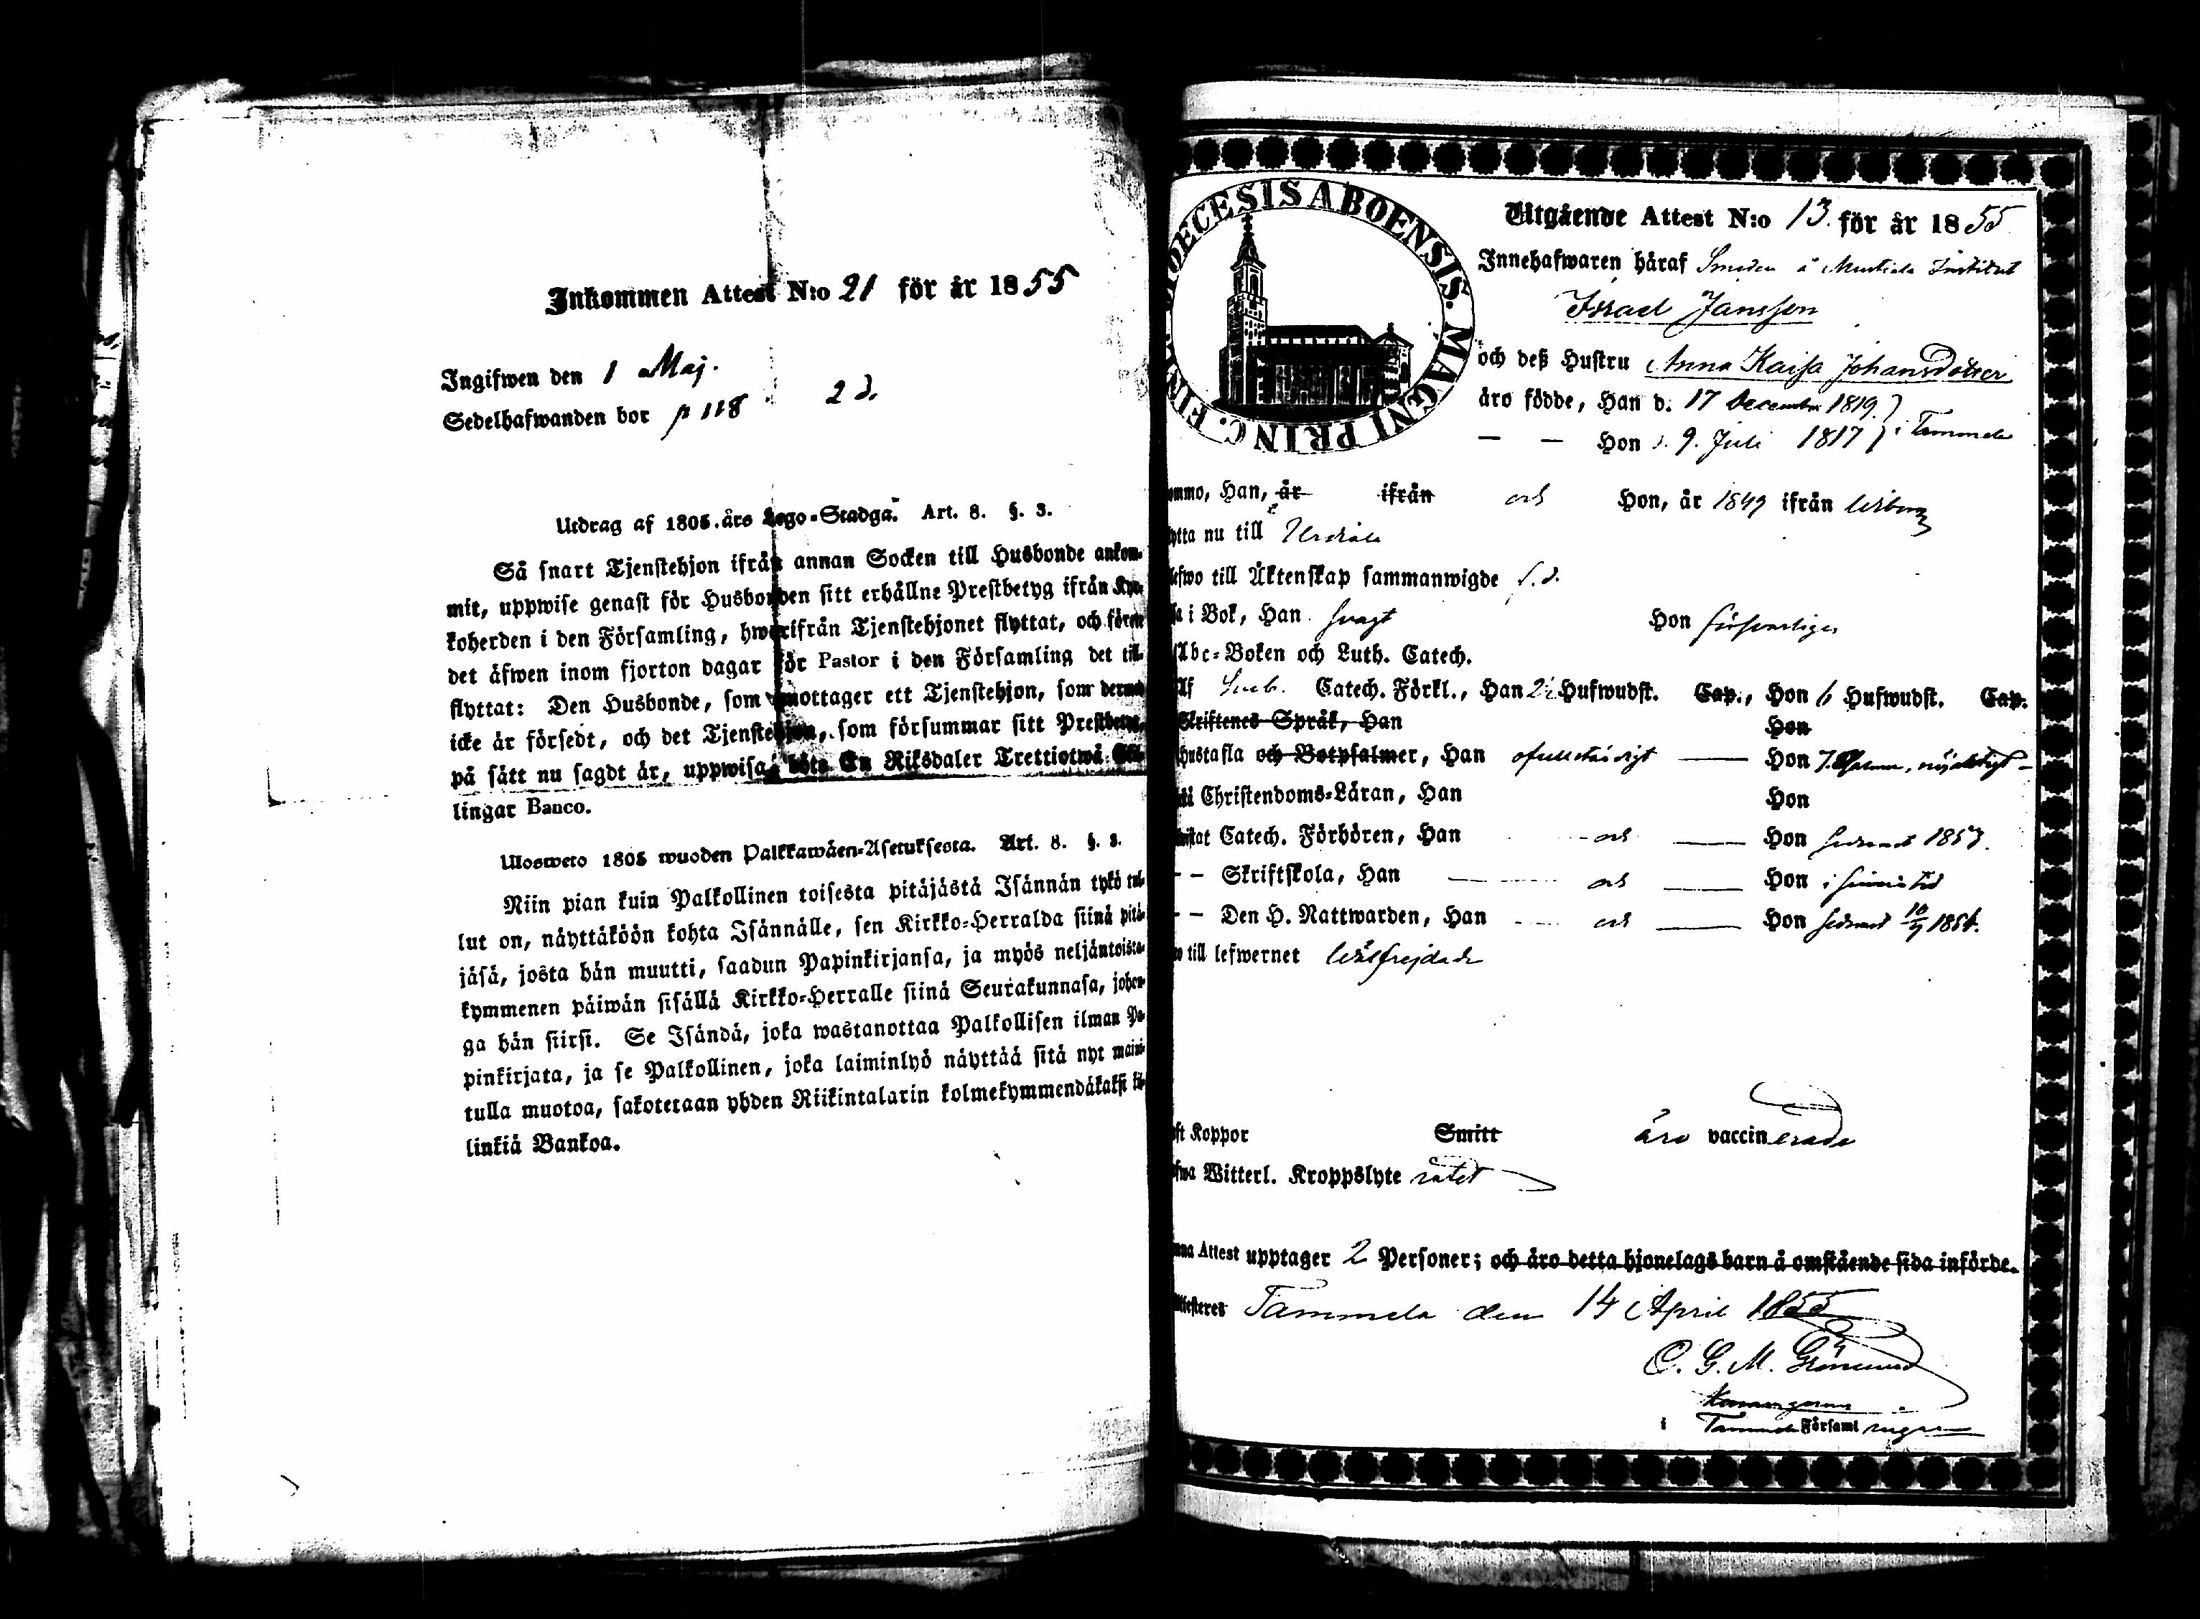 Inkommen Attest N:o 21 för år 1855
Ingifwen den 1 Maj.
Sedelhafwanden bor p 118 2 d.
Utdrag af 1805 års Lego-Stadga. Art. 8. §. 3.
Så snart Tjenstehjon ifrån annan Socken till Husbonde ankom-
mit, uppwise genast för Husbonden sitt erhållne Prestbetyg ifrån Kyr-
koherden i den Församling, hwarifrån Tjenstehjonet flyttat, och förete
det äfwen inom fjorton dagar för Pastor i den Församling det till-
flyttat: Den Husbonde, som emottager ett Tjenstehjon, som dermed
icke är försedt, och det Tjenstehjon, som försummar sitt Prestbetyg,
på sätt nu sagdt är, uppwisa, böte En Riksdaler Trettiotwå Skil-
lingar Banco.
Ulosweto 1805 wuoden Palkkawäen-Asetuksesta. Art. 8. §. 3.
Niin pian kuin Palkollinen toisesta pitäjästä Isännän tykö tul-
lut on, näyttäköön kohta Isännälle, sen Kirkko-Herralda siinä pitä-
jäsä, josta hän muutti, saadun Papinkirjansa, ja myös neljäntoista-
kymmenen päiwän sisällä Kirkko-Herralle siinä Seurakunnasa, johon-
ga hän siirsi. Se Isändä, joka wastanottaa Palkollisen ilman Pa-
pinkirjata, ja se Palkollinen, joka laiminlyö näyttää sitä nyt maini-
tulla muotoa, sakotetaan yhden Riikintalarin kolmekymmendäkaksi ki-
linkiä Bankoa.
DIOECESIS ABOENSIS. MAGNI PRINC. FINL.
Utgående Attest N:o 13. för år 1855
Innehafwaren häraf Smeden å Mustiala Institut
Israel Jansson
och deß Hustru Anna Kaisa Johansdotter
äro födde, Han d. 17 December 1819.
— — Hon d. 9. Juli 1817 i Tammela
ommo, Han, är ifrån och Hon, år 1849 ifrån
ytta nu till Urdiala
lefwo till Äktenskap sammanwigde s. d.
sa i Bok, Han svagt Hon försvarliger
Abc-Boken och Luth. Catech.
Af Sveb. Catech. Förkl., Han 2 Hufwudst. Cap., Hon 6 Hufwudst. Cap.
Skriftenes Språk, Han Hon
Hustafla och Botpsalmer, Han ofullständigt — Hon
Christendoms-Läran, Han Hon
istat Catech. Förhören, Han och — Hon sednast 1853.
- - Skriftskola, Han — och — Hon i sinom tid
- - Den H. Nattwarden, Han — och — Hon sednast 1854.
o till lefwernet Wälfrejdade
ft Koppor Smitt äro vaccinerade
fwa Witterl. Kroppslyte
nna Attest upptager 2 Personer; och äro detta hjonelags barn å omstående sida införde.
Attesteres Tammela den 14 April 1855
C. G. M. Grönlund
i Tammela Församl